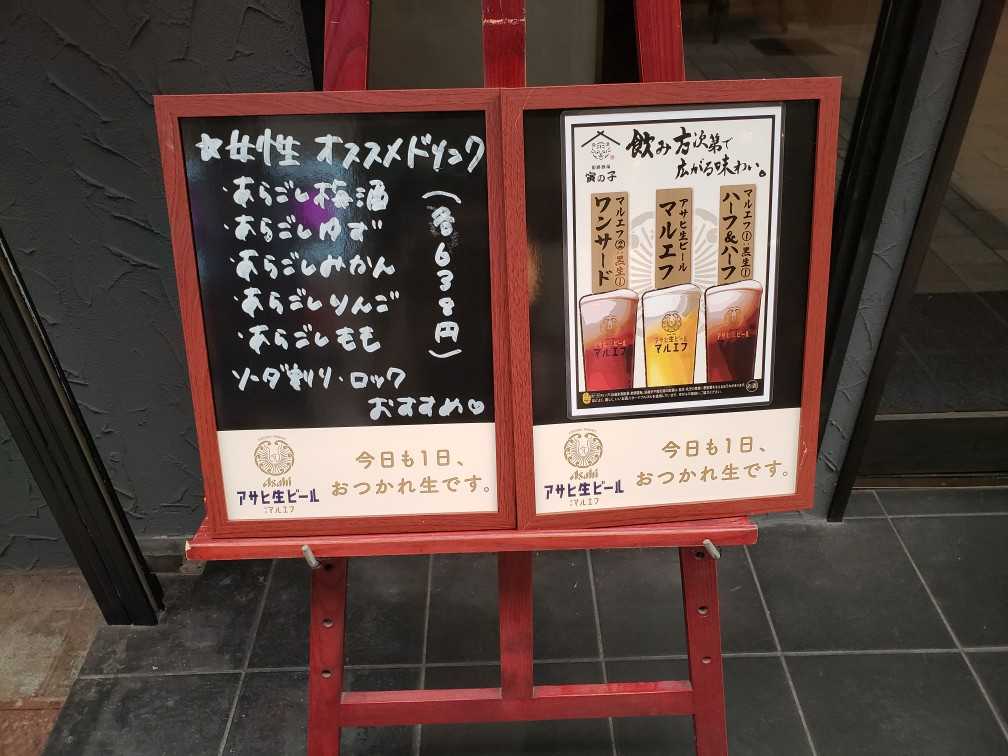 ☆女性 オススメドリンク
・あらごし梅酒
・あらごしゆず
・あらごしみかん
・あらごしりんご
・あらごしもも
(各638円)
ソーダ割り・ロック
おすすめ♡
Asahi
アサヒ生ビール
マルエフ
今日も1日、
おつかれ生です。
飲み方次第で
広がる味わい。
寅の子
マルエフ② 黒生①
ワンサード
アサヒ生ビール
マルエフ
マルエフ① 黒生①
ハーフ&ハーフ
アサヒ生ビール
マルエフ
アサヒ生ビール
マルエフ
アサヒ生ビール
マルエフ
Asahi
アサヒ生ビール
マルエフ
今日も1日、
おつかれ生です。